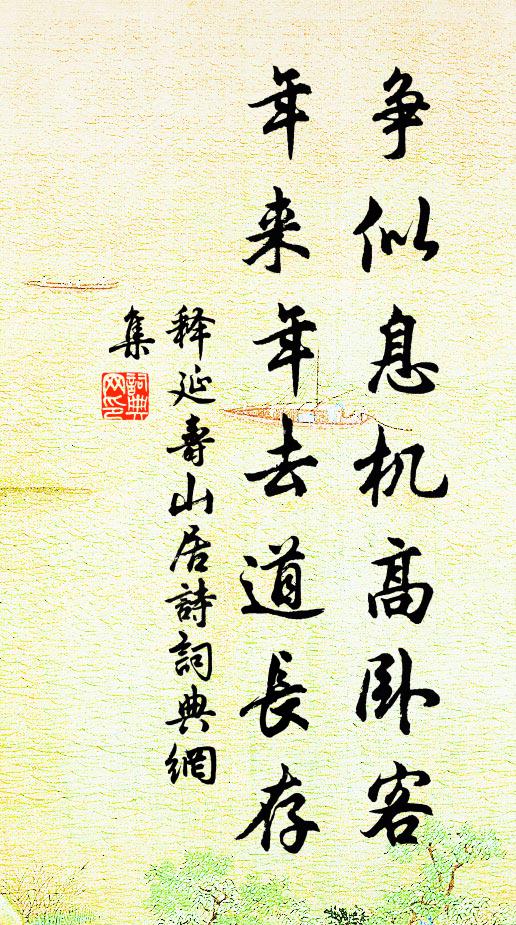 争似息机高卧客
年来年去道長存
释延壽山居詩詞典網
集
詞典网印